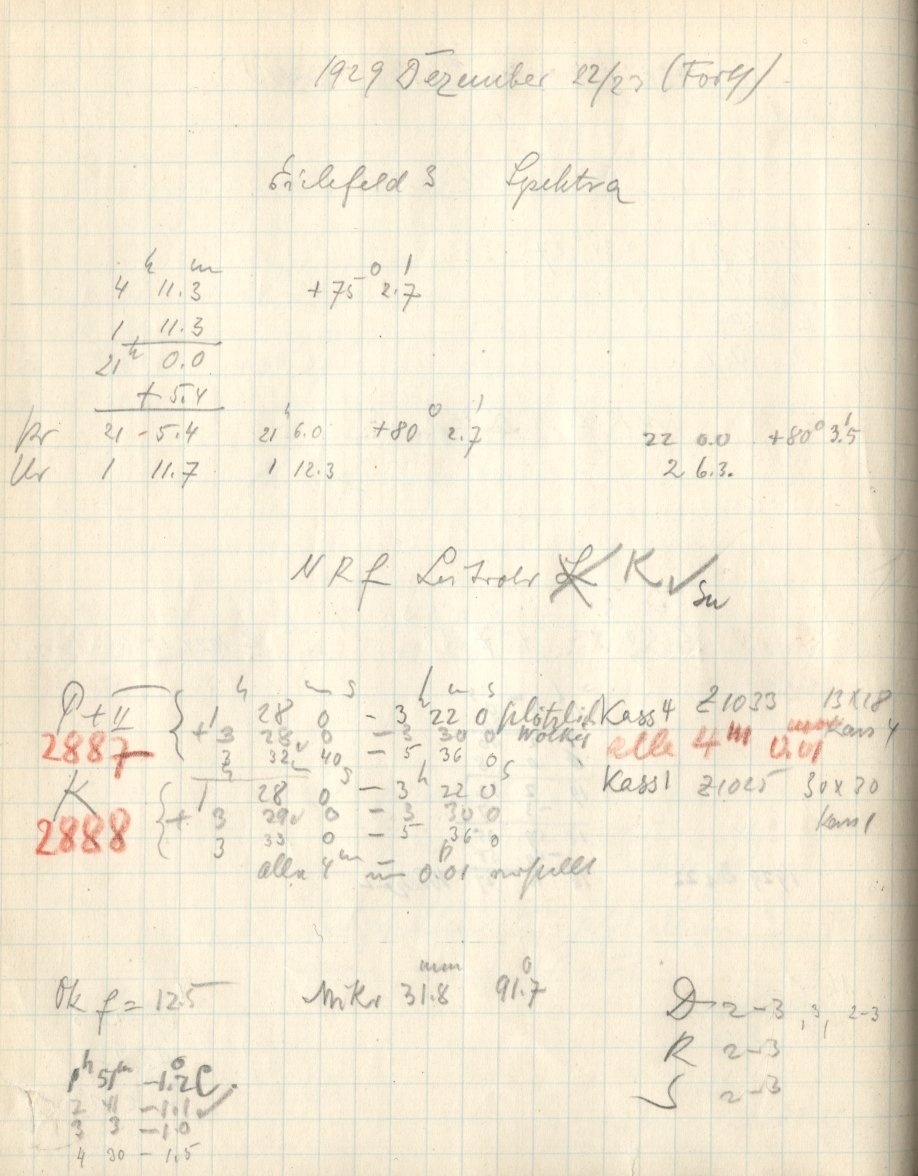 1929 Dezember 22/23 (Forts)
Eichfeld 3 Spektra
4h 11.3m +75° 2.7'
1 11.3
21h 0.0
+5.4
21 -5.4 21h 6.0 +80° 2.7' 22 0.0 +80° 3.5'
Ur 1 11.7 1 12.3 2 6.3.
NRf Leitrohr K ✓
P+II 1h 28m 0s - 3h 22m 0s plötzlich Kass 4 Z1033 13x18
2887 +3 28 0 - 3 30 0 Wolken alle 4m 0.01mm Kass 4
3 32 40 - 5 36 0
K 1h 28m 0s - 3h 22m 0s Kass 1 Z1025
2888 +3 29 0 - 3 30 0 Kass 1
3 33 0 - 5 36 0
alle 4m um 0.01 verstellt
Ok f = 12.5 Mikr 31.8mm 91.7° D 2-3, 3, 2-3
R 2-3
1h 51m -1.2°C. S 2-3
2 41 -1.1 ✓
3 3 -1.0
4 30 -1.5